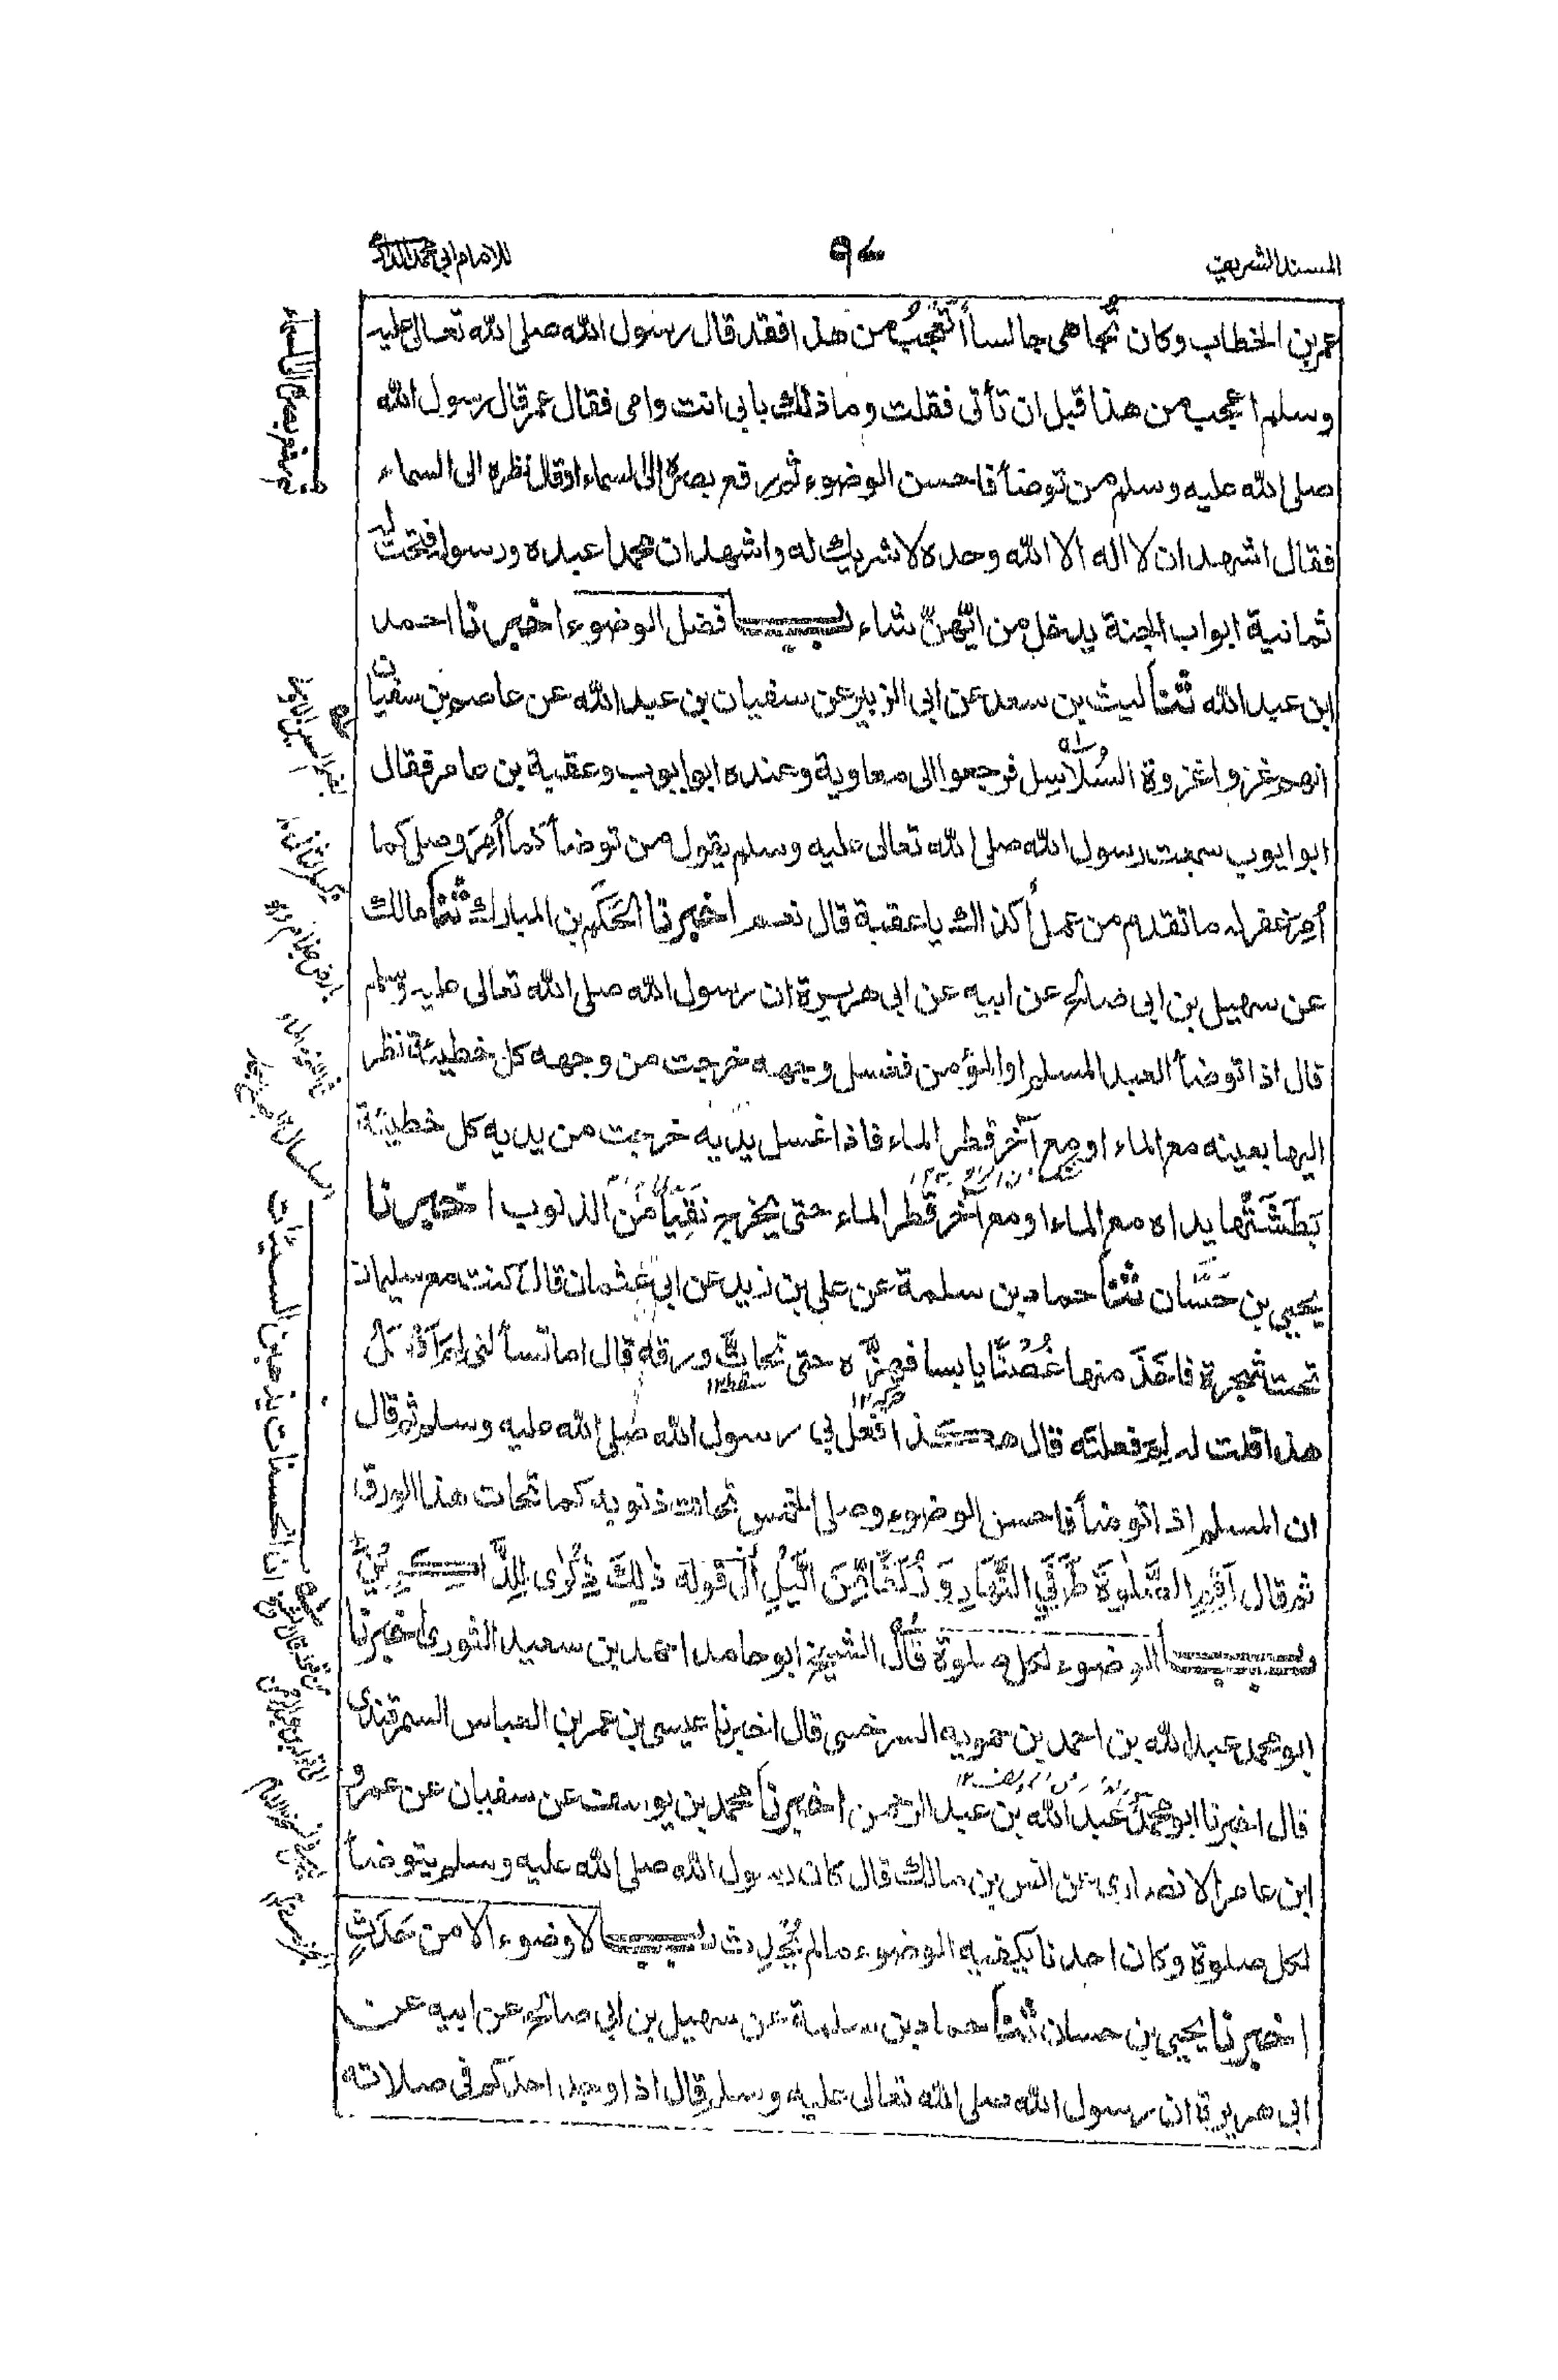 المسند الشريف
٩٧
للامام ابي محمد الدارمي
عمر بن الخطاب وكان تُجاهى جالساً أتَعْجَبُ من هذا فقد قال رسول الله صلى الله تعالى عليه
وسلم اعجب من هذا قبل ان تأتى فقلت وما ذلك بابى انت وامى فقال عمر قال رسول الله
صلى الله عليه وسلم من توضأ فاحسن الوضوء ثم رفع بصره الى السماء او قال نظره الى السماء
فقال اشهد ان لا اله الا الله وحده لا شريك له واشهد ان محمدا عبده ورسوله فتحت له
ثمانية ابواب الجنة يدخل من ايّهنّ شاء باب فضل الوضوء اخبرنا احمد
ابن عبد الله ثنا ليث بن سعد عن ابى الزبير عن سفيان بن عبد الله عن عاصم بن سفيان
انهم غزوا غزوة السُلاسِل فرجعوا الى معاوية وعنده ابو ايوب وعقبة بن عامر فقال
ابو ايوب سمعت رسول الله صلى الله تعالى عليه وسلم يقول من توضأ كما أُمِرَ وصلى كما
أُمِرَ غفر له ما تقدم من عمل أكذاك يا عقبة قال نعم اخبرنا الحَكَم بن المبارك ثنا مالك
عن سهيل بن ابى صالح عن ابيه عن ابى هريرة ان رسول الله صلى الله تعالى عليه وسلم
قال اذا توضأ العبد المسلم او المؤمن فغسل وجهه خرجت من وجهه كل خطيئة نظر
اليها بعينه مع الماء او مع آخر قطر الماء فاذا غسل يديه خرجت من يديه كل خطيئة
بَطَشَتْها يداه مع الماء او مع آخر قطر الماء حتى يخرج نَقِيّاً مِن الذنوب اخبرنا
يحيى بن حَسَّان ثنا حماد بن سلمة عن على بن زيد عن ابى عثمان قال كنت مع سليمان
تحت شجرة فاخَذَ منها غُصْنًا يابسا فهزّه حتى تحاتّ ورقه قال اما تسألنى لِمَ اَفْعَلُ
هذا قلت له لِمَ فعلته قال هكذا فعل بى رسول الله صلى الله عليه وسلم ثم قال
ان المسلم اذا توضأ فاحسن الوضوء وصلى الخمس تحاتت ذنوبه كما تحات هذا الورق
ثم قال اَقِمِ الصَّلٰوةَ طَرَفَيِ النَّهَارِ وَ زُلَفًا مِّنَ الَّيْلِ اِلٰى قوله ذٰلِكَ ذِكْرٰى لِلذَّاكِرِيْنَ
باب الوضوء لكل صلوة قال الشيخ ابو حامد احمد بن سعيد الثورى اخبرنا
ابو محمد عبد الله بن احمد بن حمويه السرخسى قال اخبرنا عيسى بن عمر بن العباس السمرقندى
قال اخبرنا ابو محمد عبد الله بن عبد الرحمن اخبرنا محمد بن يوسف عن سفيان عن عمرو
ابن عامر الانصارى عن انس بن مالك قال كان رسول الله صلى الله عليه وسلم يتوضأ
لكل صلوة وكان احدنا يكفيه الوضوء ما لم يُحْدِث باب لا وضوء الا من حَدَثٍ
اخبرنا يحيى بن حسان ثنا حماد بن سلمة عن سهيل بن ابى صالح عن ابيه عن
ابى هريرة ان رسول الله صلى الله تعالى عليه وسلم قال اذا وجد احدكم فى صلاته
ان الحسنات يذهبن السيئات